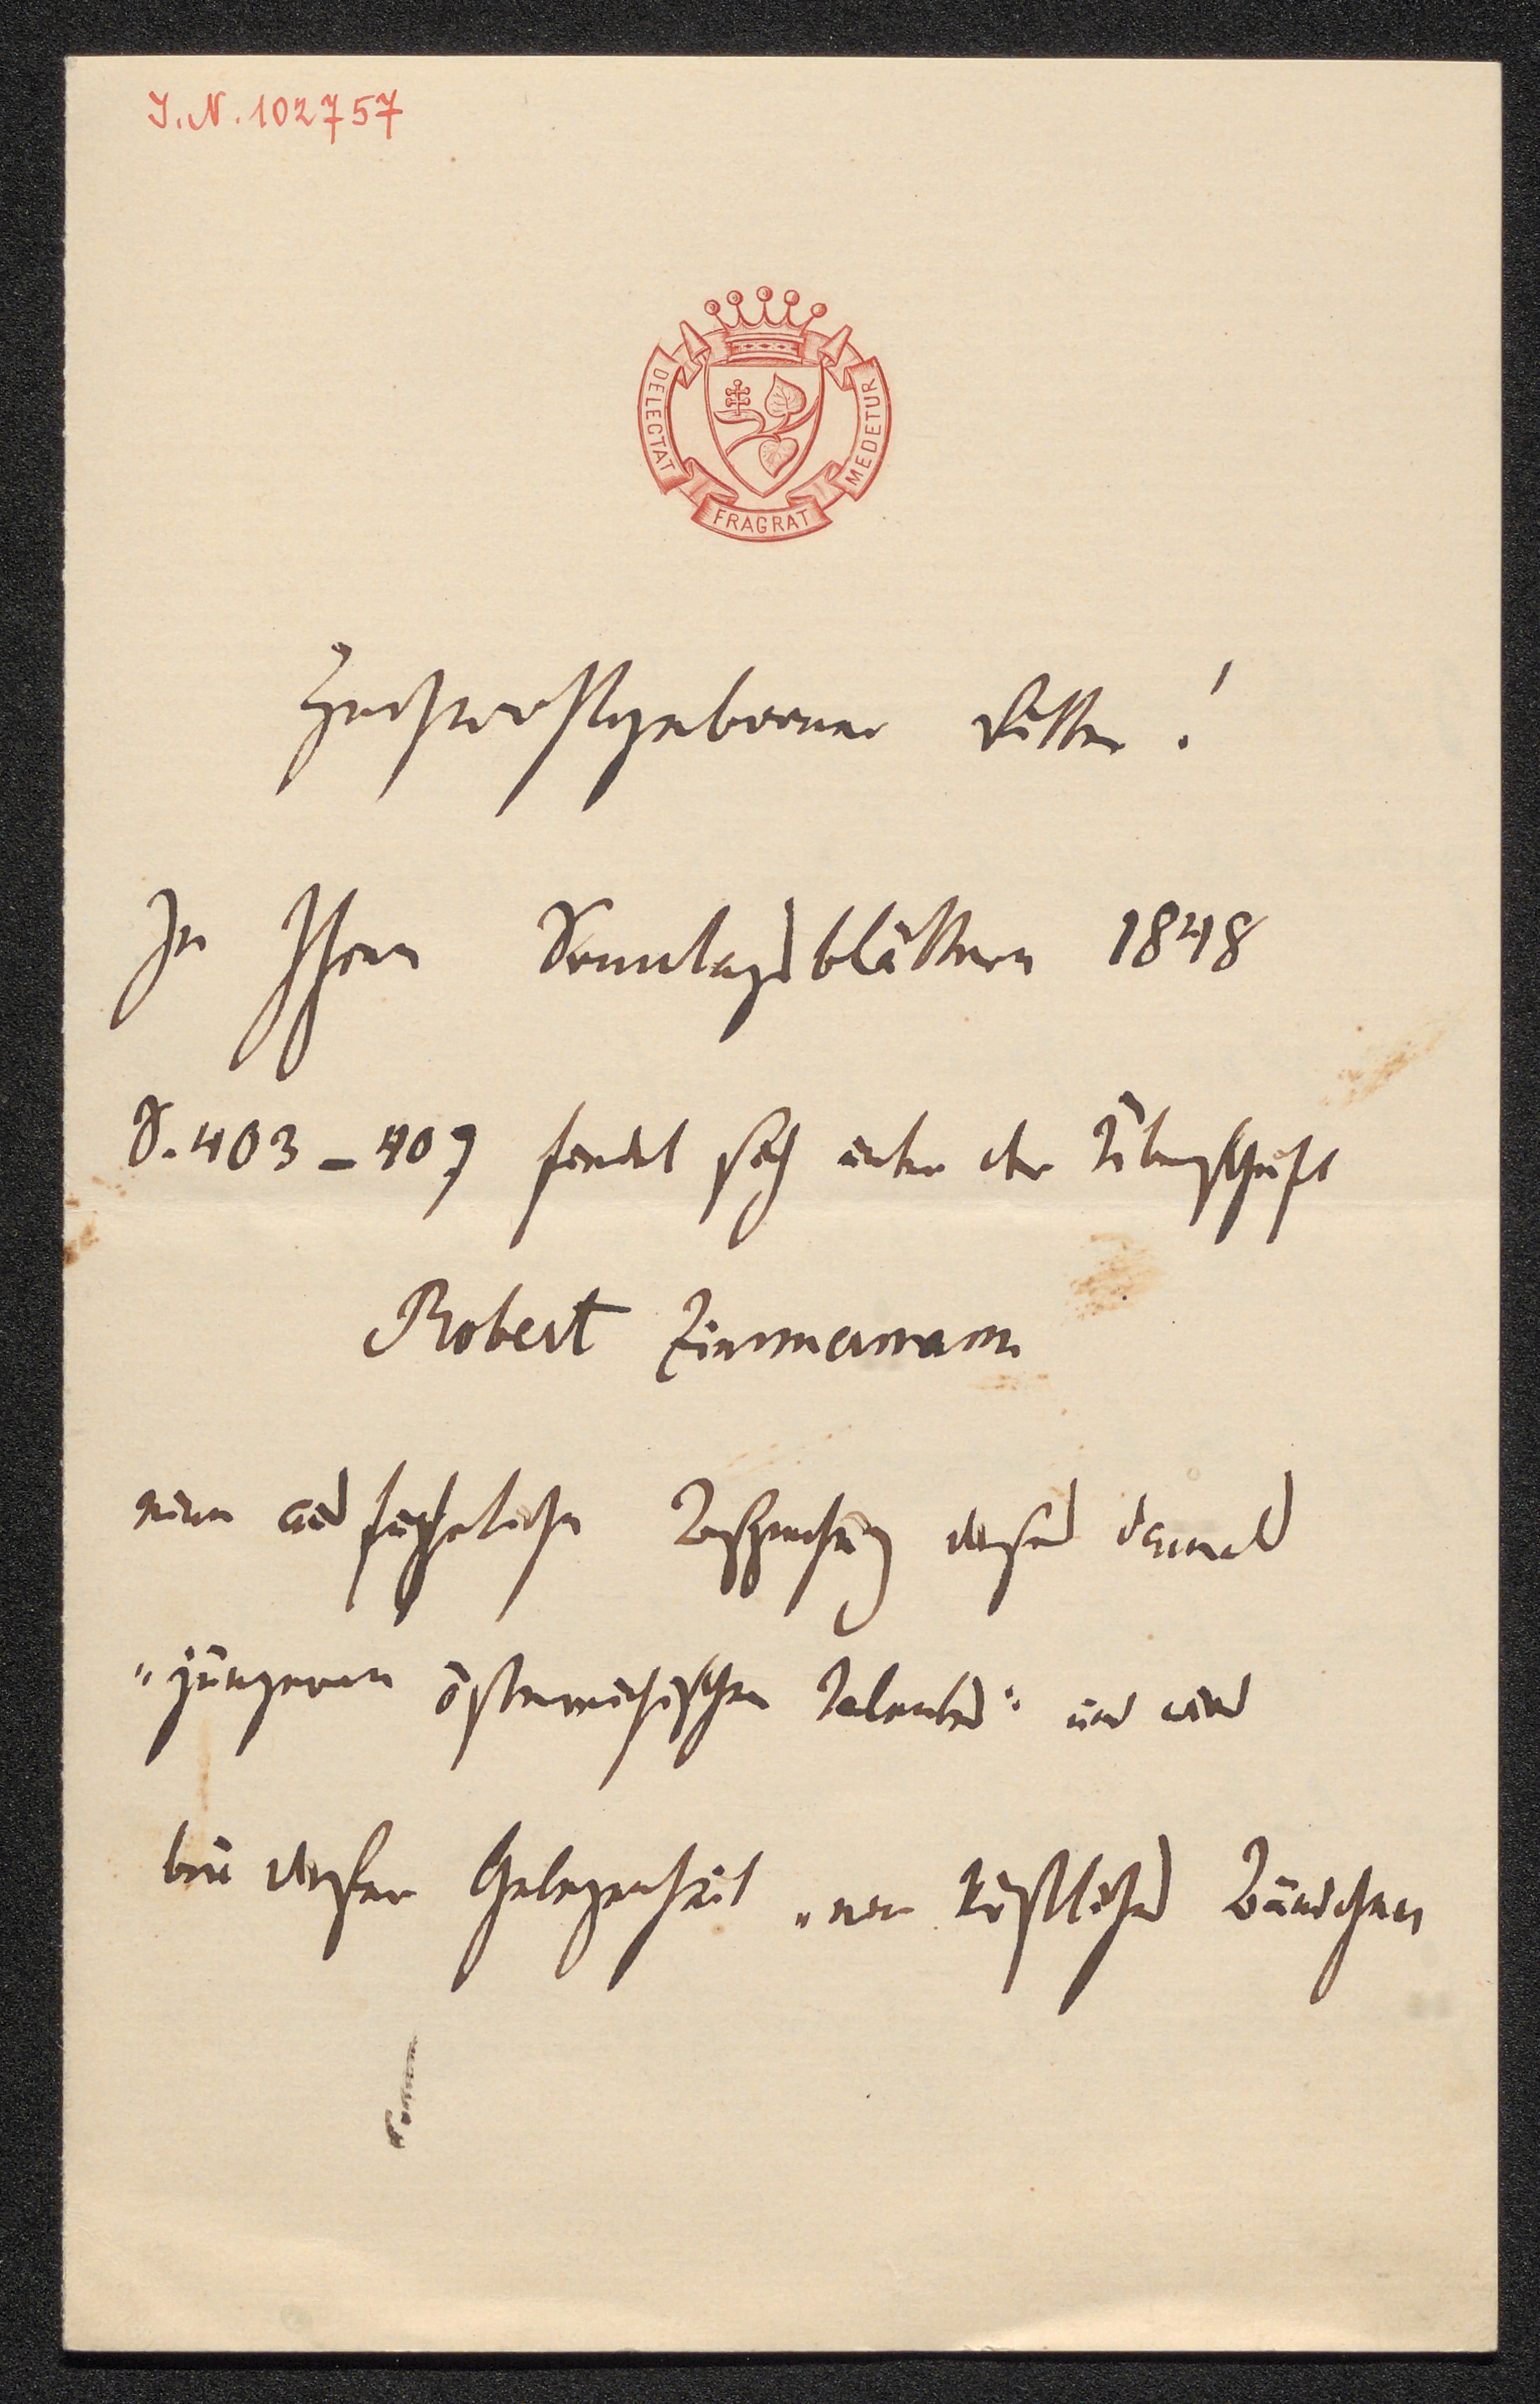 I.N. 102757
DELECTAT
FRAGRAT
MEDETUR
Hochwohlgeborner Ritter!
In Ihren Sonntagsblättern 1848
S. 403–407 findet sich unter der Überschrift
Robert Zimmermann
eine ausführliche Besprechung dieses damals
„jüngeren österreichischen Talentes“ und wird
bei dieser Gelegenheit „ein köstliches Bändchen